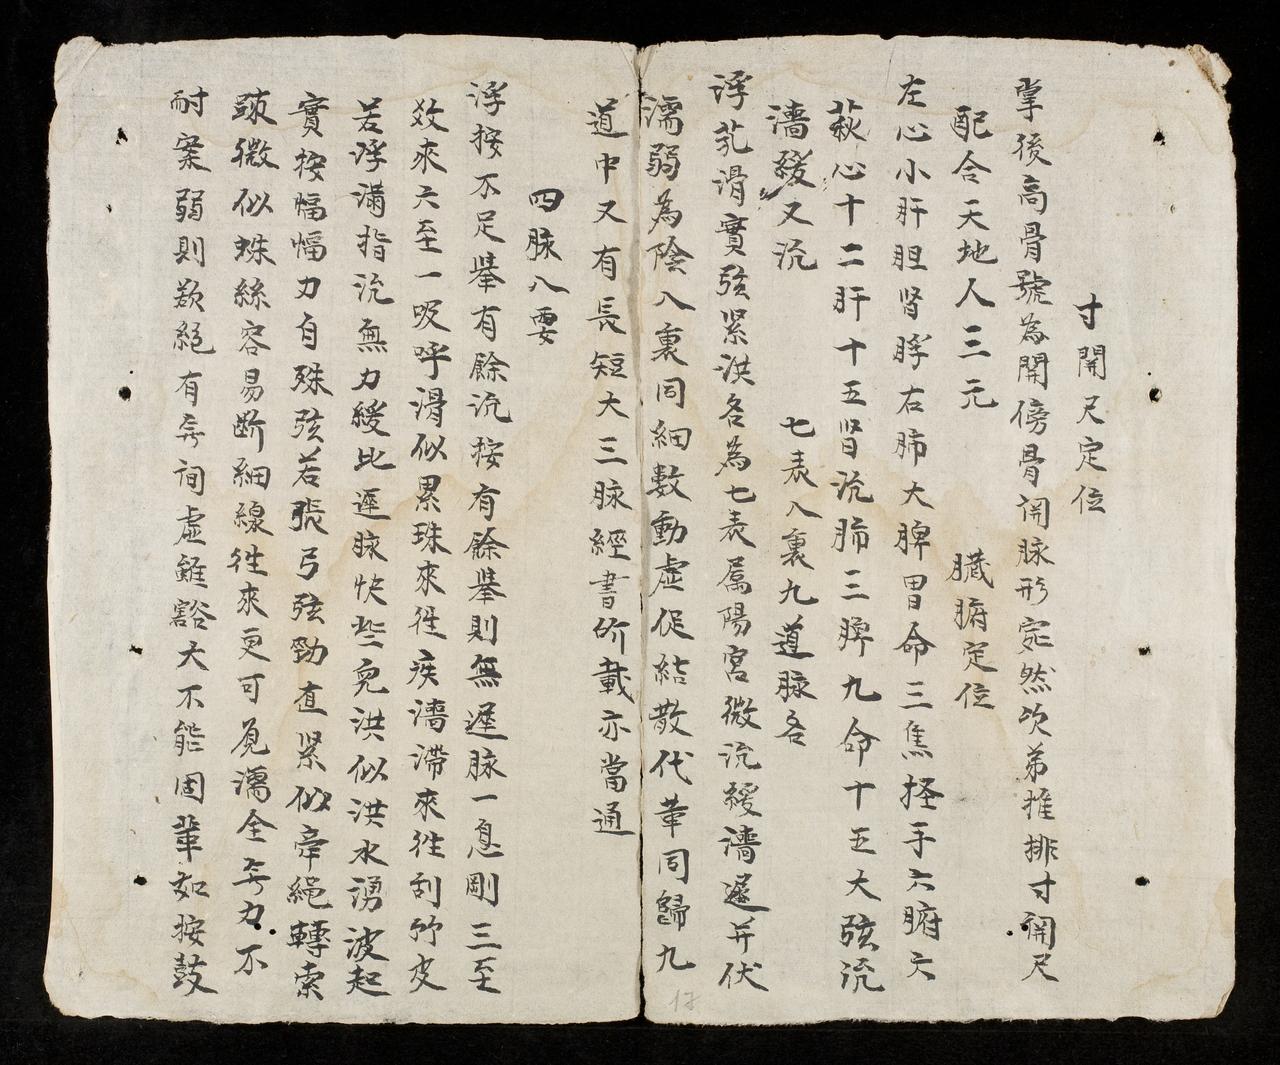 寸開尺定位
掌後高骨號為開傍骨関脉形宛然次苐推排寸関尺
配合天地人三元
臓腑定位
左心小肝胆肾脬右肺大脾胃命三焦挃手六腑六
菽心十二肝十五肾沉肺三脾九命十五大弦沉
濇緩又沉
七表八裏九道脉各
浮芤滑實弦紧洪各為七表属陽宫微沉緩濇遲并伏
濡弱為陰八裏同細數動虚促結散代革同歸九
道中又有長短大三脉經書所載亦當通
四脉八要
浮按不足舉有餘沉按有餘舉則無遲脉一息剛三至
效來六至一吸呼滑似累珠來徃疾濇滯來徃刮竹皮
若浮滿指沉無力緩比遲脉快些兒洪似洪水湧波起
實按愊愊力自殊弦若張弓弦勁直紧似牵繩轉索
頭微似蛛絲容易断細線徃來更可見濡全旡力不
耐案弱則欲絕有旡间虚雖豁大不能固革如按鼓